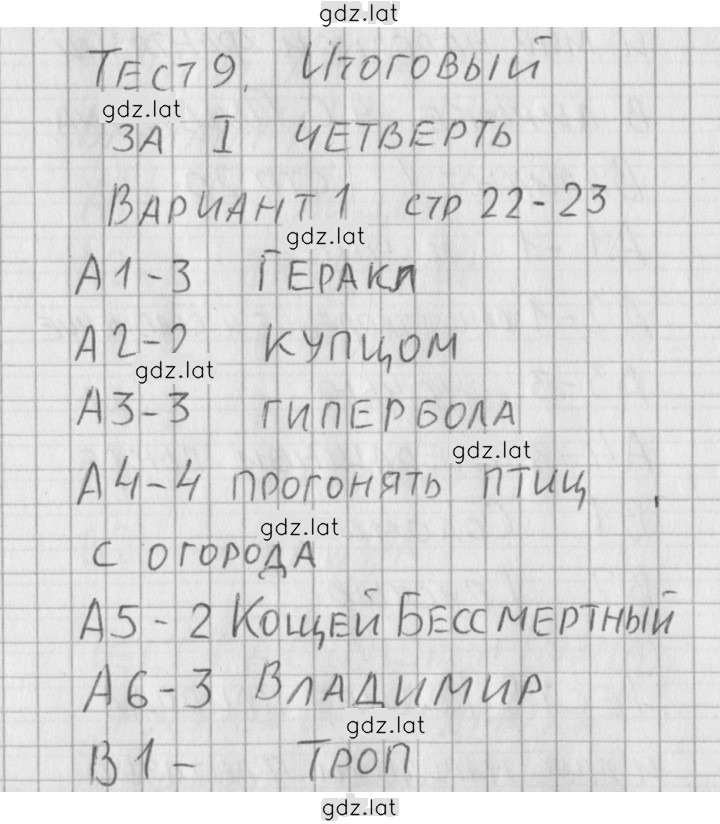 gdz.lat
ТЕСТ 9. ИТОГОВЫЙ
gdz.lat
ЗА I ЧЕТВЕРТЬ
ВАРИАНТ 1 СТР 22-23
gdz.lat
А1-3 ГЕРАКЛ
А2-2 КУПЦОМ
gdz.lat
А3-3 ГИПЕРБОЛА
gdz.lat
А4-4 ПРОГОНЯТЬ ПТИЦ
gdz.lat
С ОГОРОДА
А5-2 КОЩЕЙ БЕССМЕРТНЫЙ
А6-3 ВЛАДИМИР
gdz.lat
В1- ТРОП
gdz.lat